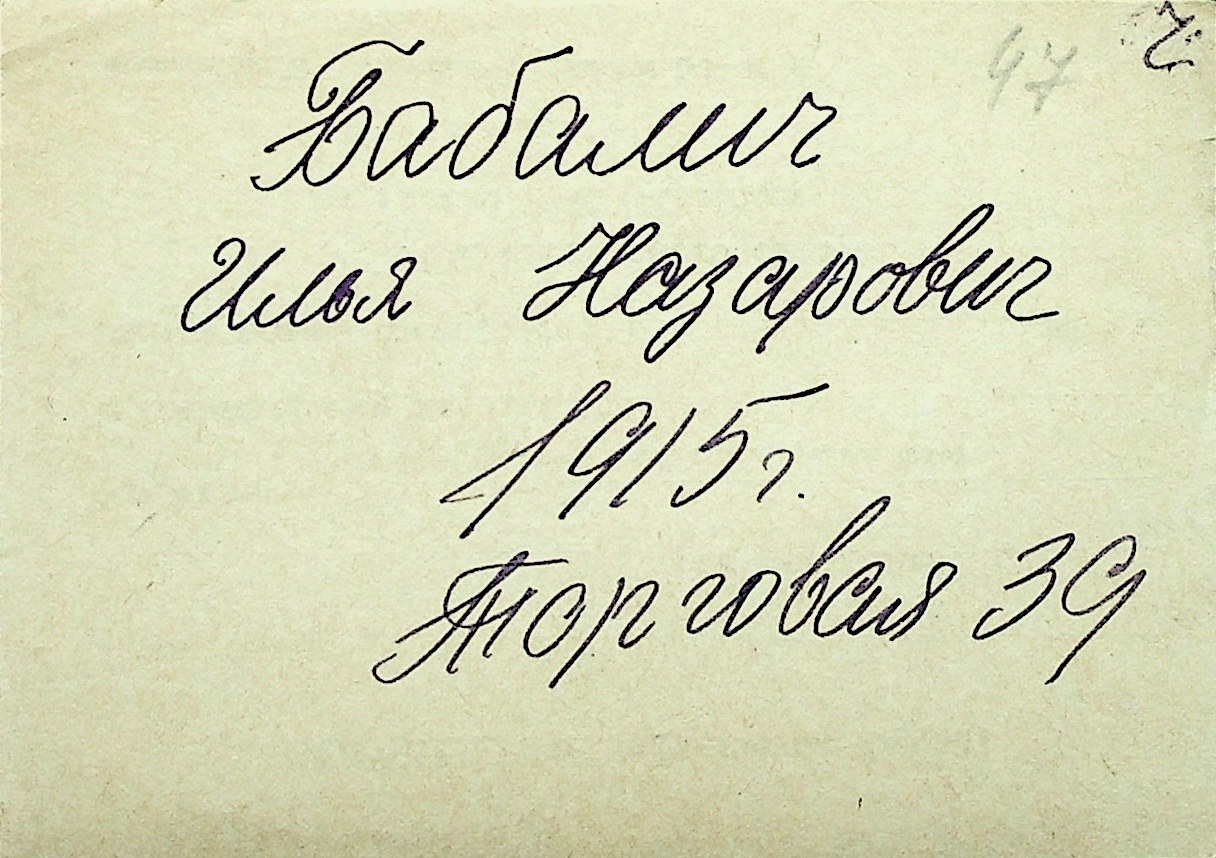 47
Бабалич
Илья Назарович
1915 г.
Торговая 39